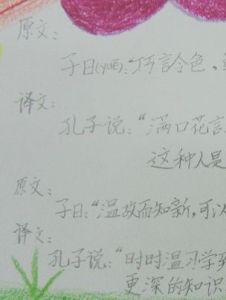 原文:
子曰(yuē):“巧言令色,
译文:
孔子说:“满口花言
这种人是
原文:
子曰:“温故而知新,可以
译文:
孔子说:“时时温习学
更深的知识